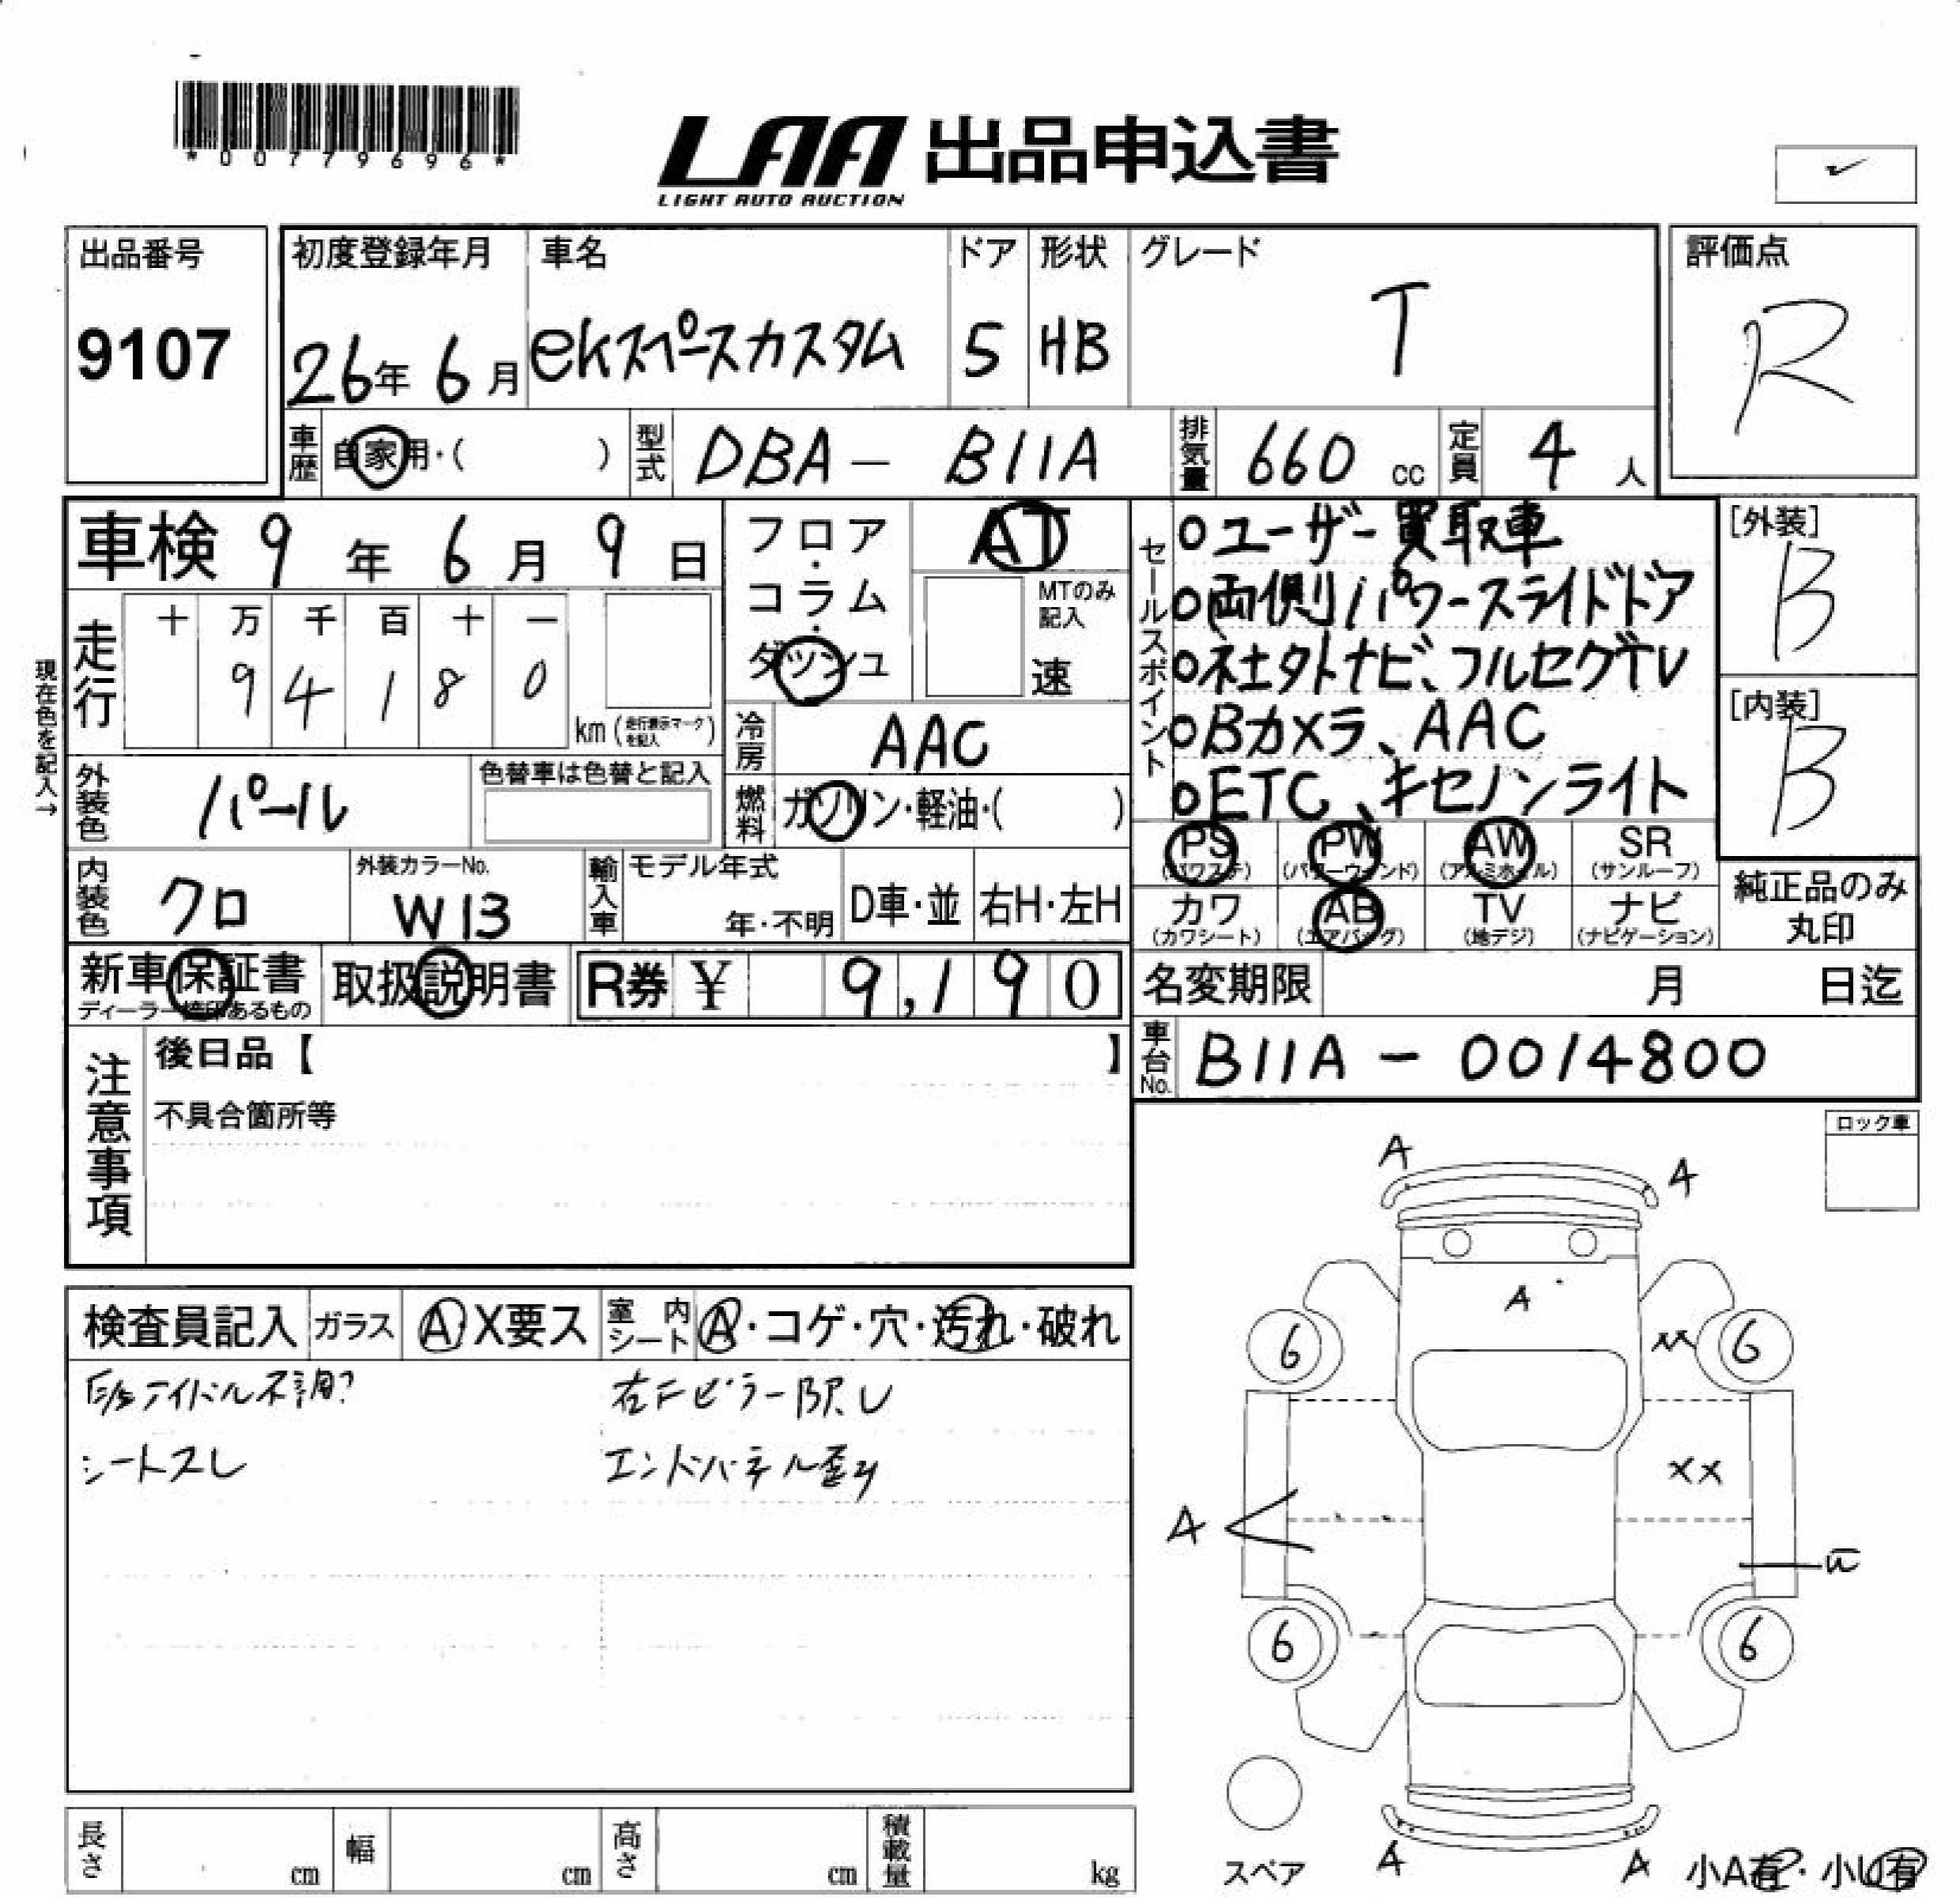 *00779696*
LAA 出品申込書
LIGHT AUTO AUCTION
出品番号
9107
初度登録年月
26年 6月
車名
ekスペースカスタム
ドア
5
形状
HB
グレード
T
評価点
R
車歴 自家用・( )
型式 DBA - B11A
排気量 660 cc
定員 4 人
車検 9年 6月 9日
現在色を記入→
走行
十 万 千 百 十 一
9 4 1 8 0
km (走行表示マークを記入)
フロア・コラム・ダッシュ
AT
MTのみ記入
速
冷房 AAC
燃料 ガソリン・軽油・( )
セールスポイント
○ユーザー買取車
○両側パワースライドドア
○社外ナビ、フルセグTV
○Bカメラ、AAC
○ETC、キセノンライト
[外装]
B
[内装]
B
外装色 パール
色替車は色替と記入
内装色 クロ
外装カラーNo.
W13
輸入車
モデル年式
年・不明
D車・並
右H・左H
PS (パワステ)
PW (パワーウインド)
AW (アルミホイル)
SR (サンルーフ)
カワ (カワシート)
AB (エアバッグ)
TV (地デジ)
ナビ (ナビゲーション)
純正品のみ
丸印
新車保証書
取扱説明書
R券 ¥ 9,190
名変期限 月 日迄
車台No. B11A - 0014800
注意事項
後日品【 】
不具合箇所等
ロック車
検査員記入
ガラス
A X要ス
室内シート
A・コゲ・穴・汚れ・破れ
アイドル不調?
シートスレ
右Fピラー凹U
エンドパネル歪み
A
A
A
6
6
XX
A
6
6
A
A
スペア
小A有・小U有
長さ cm
幅 cm
高さ cm
積載量 kg